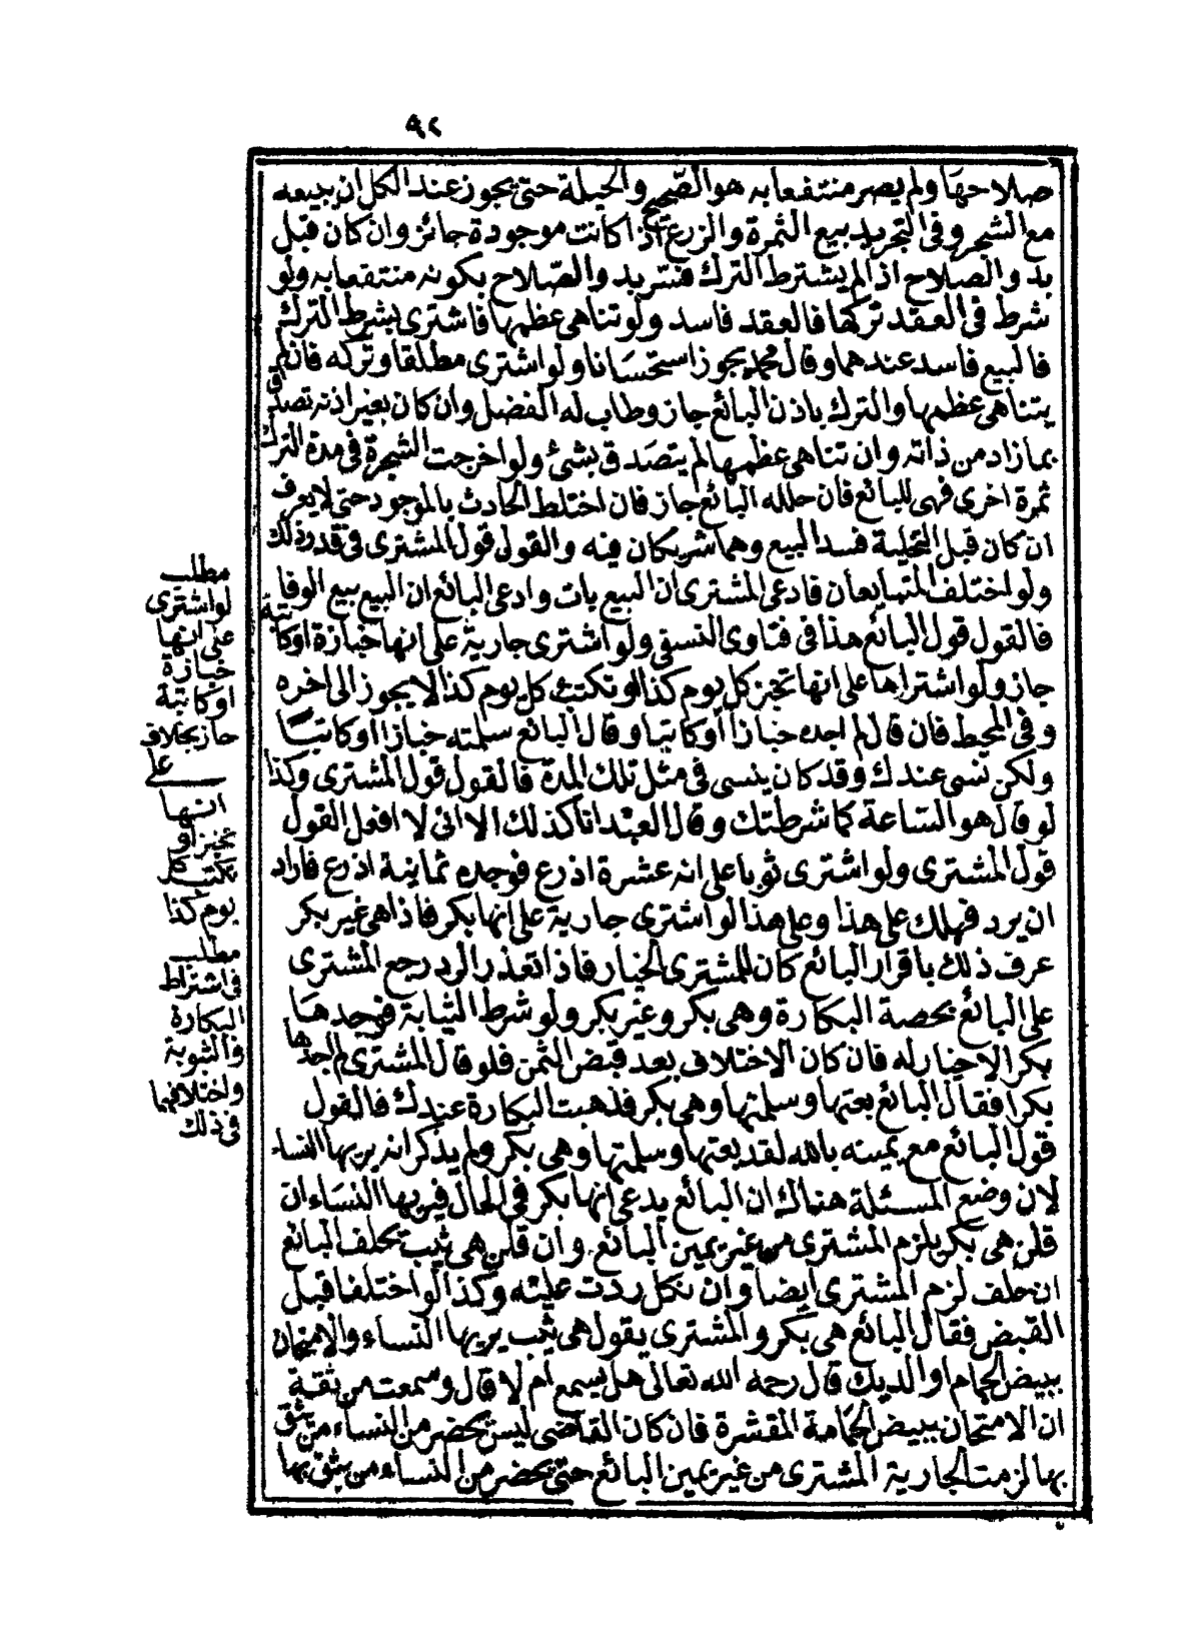 ٩٢
صلاحها ولم يصر منتفعا به هو الصحيح والحيلة حتى يجوز عند الكل ان يبيعه
مع الشجر وفى التجريد بيع الثمرة والزرع اذا كانت موجودة جائز وان كان قبل
بدو الصلاح اذا لم يشترط الترك فنفسر بدو الصلاح بكونه منتفعا به ولو
شرط فى العقد تركها فالعقد فاسد ولو تناهى عظمها فاشترى بشرط الترك
فالبيع فاسد عندهما وقال محمد يجوز استحسانا ولو اشترى مطلقا وتركه فان لم
يتناهى عظمها والترك باذن البائع جاز وطاب له الفضل وان كان بغير اذنه تصدق
بما زاد من ذاته وان تناهى عظمها لم يتصدق بشئ ولو اخرجت الشجرة فى مدة الترك
ثمرة اخرى فهى للبائع فان حلله البائع جاز فان اختلط الحادث بالموجود حتى لا يعرف
ان كان قبل التخلية فسد البيع وهما شريكان فيه والقول قول المشترى فى قدر ذلك
ولو اختلف المتبايعان فادعى المشترى ان البيع بات وادعى البائع ان البيع بيع الوفا
فالقول قول البائع هذا فى فتاوى النسفى ولو اشترى جارية على انها خبازة او كاتبة
جاز ولو اشتراها على انها تخبز كل يوم كذا او تكتب كل يوم كذا لا يجوز الى اخره
وفى المحيط فان قال لم اجده خبازا او كاتبا وقال البائع سلمته خبازا او كاتبا
ولكن نسى عندك وقد كان ينسى فى مثل تلك المدة فالقول قول المشترى وكذا
لو قال هو الساعة كما شرطتك وقال العبد انا كذلك الا انى لا افعل القول
قول المشترى ولو اشترى ثوبا على انه عشرة اذرع فوجده ثمانية اذرع فاراد
ان يرد فهلك على هذا وعلى هذا لو اشترى جارية على انها بكر فاذا هى غير بكر
عرف ذلك باقرار البائع كان للمشترى الخيار فاذا تعذر الرد رجع المشترى
على البائع بحصة البكارة وهى بكر وغير بكر ولو شرط الثيابة فوجدها
بكرا لا خيار له فان كان الاختلاف بعد قبض الثمن فلو قال المشترى لم اجدها
بكرا فقال البائع بعتها وسلمتها وهى بكر فذهبت البكارة عندك فالقول
قول البائع مع يمينه بالله لقد بعتها وسلمتها وهى بكر ولم يذكر انه يريها النساء
لان وضع المسئلة هناك ان البائع يدعى انها بكر فى الحال فيريها النساء ان
قلن هى بكر يلزم المشترى من غير يمين البائع وان قلن هى ثيب يحلف البائع
ان حلف لزم المشترى ايضا وان نكل ردت عليه وكذا لو اختلفا قبل
القبض فقال البائع هى بكر والمشترى يقول هى ثيب يريها النساء والامتحان
ببيض الحمام او الديك قال رحمه الله تعالى هل يسمع ام لا قال وسمعت من ثقة
ان الامتحان ببيض الحمامة المقشرة فان كان القاضى ليس بحضر من النساء من يثق
بها لزمت الجارية المشترى من غير يمين البائع حتى يحضر من النساء من يثق بها
مطلب
لو اشترى
على انها
خبازة
او كاتبة
جاز بخلاف
على
انها
تخبز او
تكتب كل
يوم كذا
مطلب
فى اشتراط
البكارة
والثيوبة
واختلافهما
فى ذلك